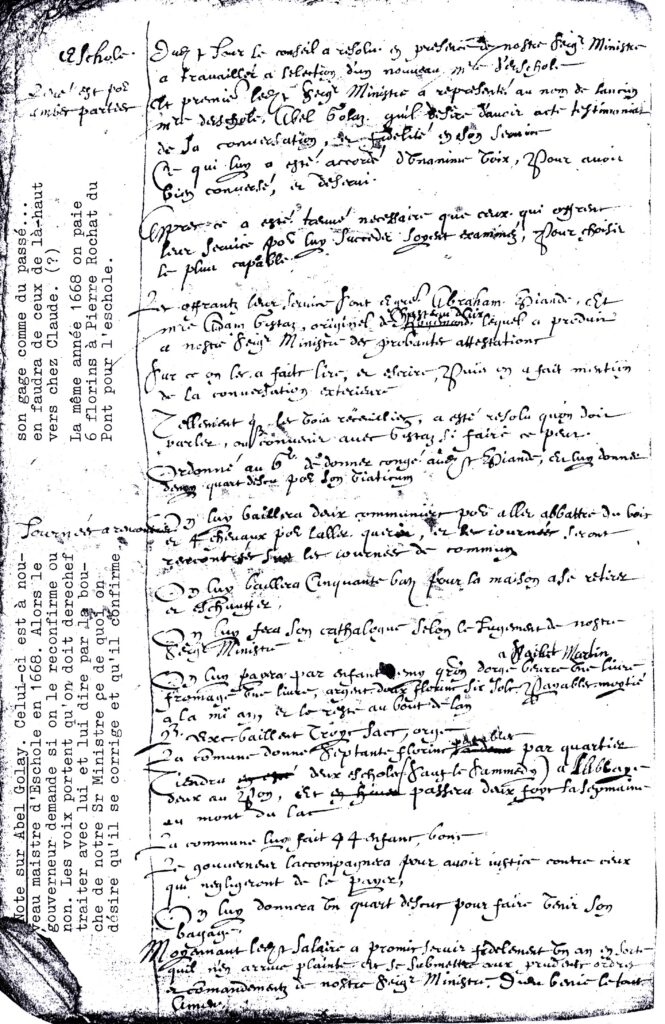 Eschole.
ambes parties
Dud. jour le conseil a resolu en presence de nostre Seigr Ministre
a travailler a selection d'un nouveau mre d'eschole
Et premier led. Seigr Ministre a representé au nom de lancien
mre deschole, Abel Golay quil desire davoir acte testimonial
de sa conversation, et fidelité en son service
Ce qui luy a esté accordé d'unanime voix, Pour avoir
bien conversé, et deservi.
Apres ce a esté trouvé necessaire que ceux qui offrent
leur service por luy succeder soyent examinez, Pour choisir
le plus capable.
Les offrantz leur service sont Abraham Piande, Et
mre Adam originel de lequel a produit
a nostre Seigr Ministre des probantes attestations
Sur ce on les a faits lire, et escrire, Puis on a fait mention
de la conversation exterieure
Tellement q. les voix recueillies, a esté resolu quon doit
parler, ou convenir avec si faire ce peut.
Ordonné au de donner congé aud. Piande, et luy donner
quart descu por son viaticum
Journées a
On luy baillera deux communiers por aller abbattre du bois
et 4 chevaux por laller querir, et les journées seront
les journées de commun
On luy baillera Cinquante batz pour la maison a se retirer
et eschauffer,
On luy fera son cathalogue selon le Jugement de nostre
Seigr Ministre
a Martin
On luy payra par enfant dorge beurre une livre
fromage une livre, argent deux florins six sols, Payables moytié
a la mi an, et le reste au bout de lan
baillent Troys sacs, orge
La comune donne Septante florins par quartier
Tiendra deux escholes (sauf le sammedy) a LAbbaye
deux au Pon, et passera deux foys la sepmaine
au mont du lac
La commune luy fait 44 enfant, bons
Le gouverneur laccompagnera pour avoir justice contre ceux
qui negligeront de le payer,
On luy donnera un quart descus pour faire venir son
bagage
Moyenant led. salaire a promis servir fidelement un an en sorte
quil nen arrive plainte et se submettre aux prudents ordres
et comandements de nostre Seigr Ministre. Dieu benie le tout
Amen
Note sur Abel Golay. Celui-ci est à nou-
veau maistre d'Eschole en 1668. Alors le
gouverneur demande si on le reconfirme ou
non. Les voix portent qu'on doit derechef
traiter avec lui et lui dire par la bou-
che de notre Sr Ministre pe de quoi on
désire qu'il se corrige et qu'il confirme
son gage comme du passé...
en faudra de ceux de là-haut
vers chez Claude. (?)
La même année 1668 on paie
6 florins à Pierre Rochat du
Pont pour l'eschole.